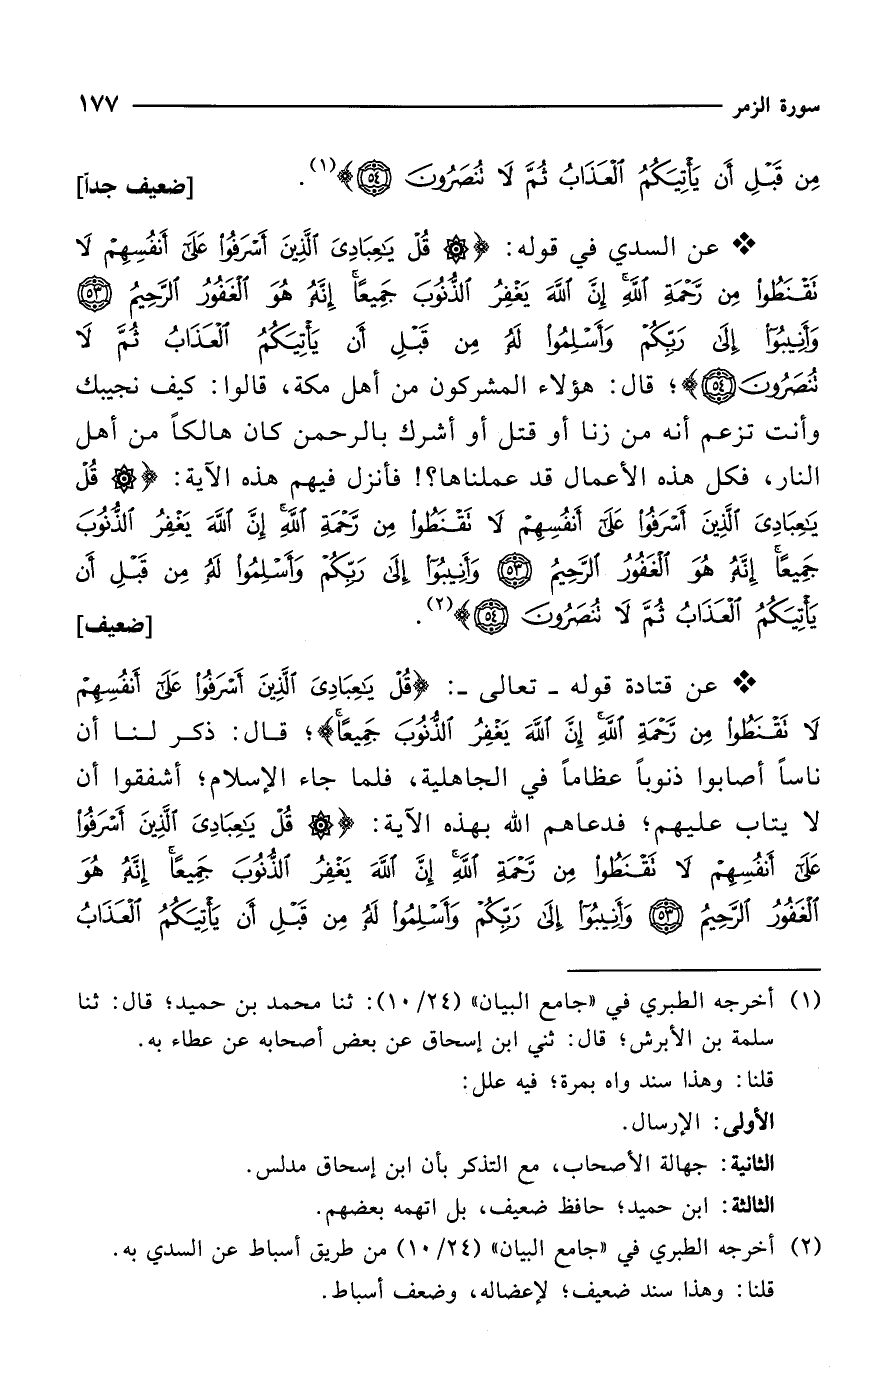 سورة الزمر ١٧٧
مِن قَبْلِ أَن يَأْتِيَكُمُ ٱلْعَذَابُ ثُمَّ لَا تُنصَرُونَ ﴿٥٤﴾﴾(١). [ضعيف جداً]
❖ عن السدي في قوله: ﴿۞ قُلْ يَـٰعِبَادِىَ ٱلَّذِينَ أَسْرَفُوا۟ عَلَىٰٓ أَنفُسِهِمْ لَا
تَقْنَطُوا۟ مِن رَّحْمَةِ ٱللَّهِ ۚ إِنَّ ٱللَّهَ يَغْفِرُ ٱلذُّنُوبَ جَمِيعًا ۚ إِنَّهُۥ هُوَ ٱلْغَفُورُ ٱلرَّحِيمُ ﴿٥٣﴾
وَأَنِيبُوٓا۟ إِلَىٰ رَبِّكُمْ وَأَسْلِمُوا۟ لَهُۥ مِن قَبْلِ أَن يَأْتِيَكُمُ ٱلْعَذَابُ ثُمَّ لَا
تُنصَرُونَ ﴿٥٤﴾﴾؛ قال: هؤلاء المشركون من أهل مكة، قالوا: كيف نجيبك
وأنت تزعم أنه من زنا أو قتل أو أشرك بالرحمن كان هالكاً من أهل
النار، فكل هذه الأعمال قد عملناها؟! فأنزل فيهم هذه الآية: ﴿۞ قُلْ
يَـٰعِبَادِىَ ٱلَّذِينَ أَسْرَفُوا۟ عَلَىٰٓ أَنفُسِهِمْ لَا تَقْنَطُوا۟ مِن رَّحْمَةِ ٱللَّهِ ۚ إِنَّ ٱللَّهَ يَغْفِرُ ٱلذُّنُوبَ
جَمِيعًا ۚ إِنَّهُۥ هُوَ ٱلْغَفُورُ ٱلرَّحِيمُ ﴿٥٣﴾ وَأَنِيبُوٓا۟ إِلَىٰ رَبِّكُمْ وَأَسْلِمُوا۟ لَهُۥ مِن قَبْلِ أَن
يَأْتِيَكُمُ ٱلْعَذَابُ ثُمَّ لَا تُنصَرُونَ ﴿٥٤﴾﴾(٢). [ضعيف]
❖ عن قتادة قوله ـ تعالى ـ: ﴿قُلْ يَـٰعِبَادِىَ ٱلَّذِينَ أَسْرَفُوا۟ عَلَىٰٓ أَنفُسِهِمْ
لَا تَقْنَطُوا۟ مِن رَّحْمَةِ ٱللَّهِ ۚ إِنَّ ٱللَّهَ يَغْفِرُ ٱلذُّنُوبَ جَمِيعًا ۚ﴾؛ قال: ذكر لنا أن
ناساً أصابوا ذنوباً عظاماً في الجاهلية، فلما جاء الإسلام؛ أشفقوا أن
لا يتاب عليهم؛ فدعاهم الله بهذه الآية: ﴿۞ قُلْ يَـٰعِبَادِىَ ٱلَّذِينَ أَسْرَفُوا۟
عَلَىٰٓ أَنفُسِهِمْ لَا تَقْنَطُوا۟ مِن رَّحْمَةِ ٱللَّهِ ۚ إِنَّ ٱللَّهَ يَغْفِرُ ٱلذُّنُوبَ جَمِيعًا ۚ إِنَّهُۥ هُوَ
ٱلْغَفُورُ ٱلرَّحِيمُ ﴿٥٣﴾ وَأَنِيبُوٓا۟ إِلَىٰ رَبِّكُمْ وَأَسْلِمُوا۟ لَهُۥ مِن قَبْلِ أَن يَأْتِيَكُمُ ٱلْعَذَابُ
(١) أخرجه الطبري في «جامع البيان» (٢٤/ ١٠): ثنا محمد بن حميد؛ قال: ثنا
سلمة بن الأبرش؛ قال: ثني ابن إسحاق عن بعض أصحابه عن عطاء به.
قلنا: وهذا سند واه بمرة؛ فيه علل:
الأولى: الإرسال.
الثانية: جهالة الأصحاب، مع التذكر بأن ابن إسحاق مدلس.
الثالثة: ابن حميد؛ حافظ ضعيف، بل اتهمه بعضهم.
(٢) أخرجه الطبري في «جامع البيان» (٢٤/ ١٠) من طريق أسباط عن السدي به.
قلنا: وهذا سند ضعيف؛ لإعضاله، وضعف أسباط.